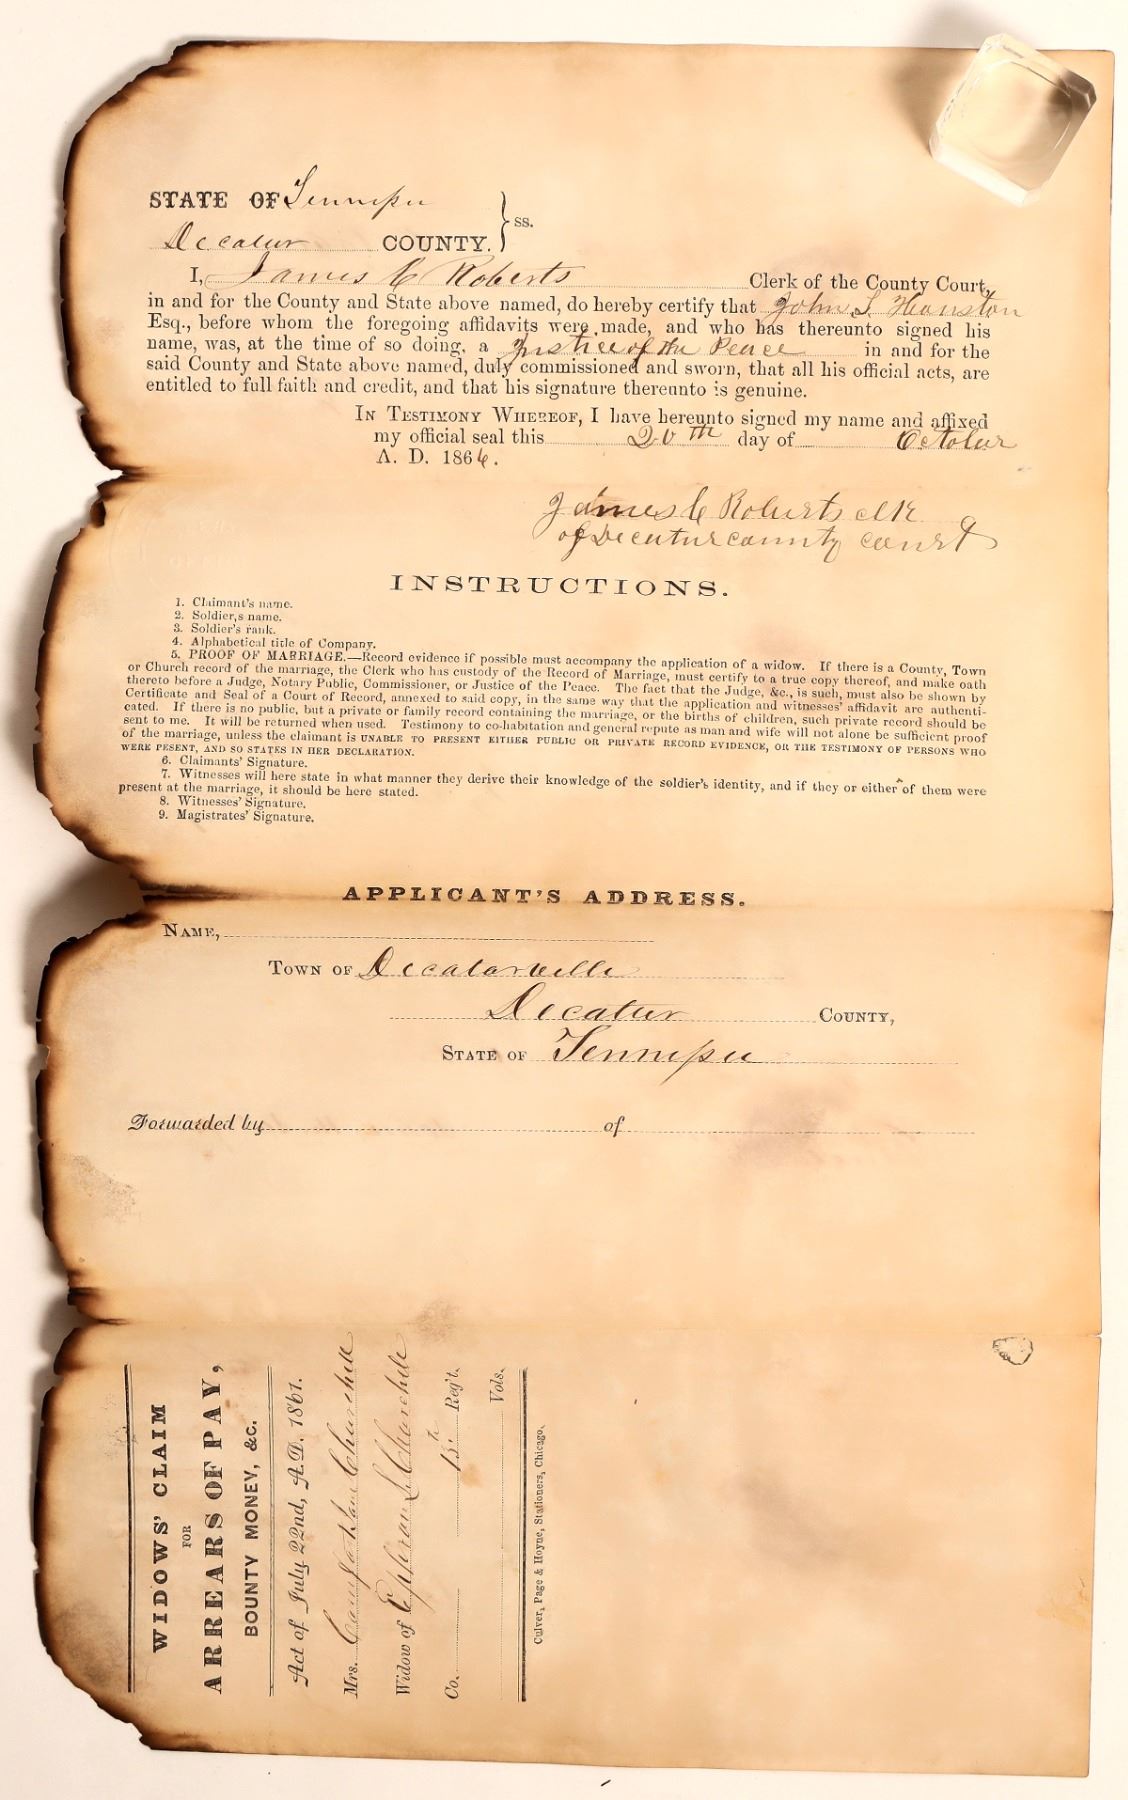 STATE OF Tennessee
Decatur COUNTY. } ss.
I, James C Roberts Clerk of the County Court,
in and for the County and State above named, do hereby certify that John S Houston
Esq., before whom the foregoing affidavits were made, and who has thereunto signed his
name, was, at the time of so doing, a Justice of the Peace in and for the
said County and State above named, duly commissioned and sworn, that all his official acts, are
entitled to full faith and credit, and that his signature thereunto is genuine.
IN TESTIMONY WHEREOF, I have hereunto signed my name and affixed
my official seal this 20th day of October
A. D. 1866.
James C Roberts clk
of Decatur county court
INSTRUCTIONS.
1. Claimant's name.
2. Soldier,s name.
3. Soldier's rank.
4. Alphabetical title of Company.
5. PROOF OF MARRIAGE.—Record evidence if possible must accompany the application of a widow. If there is a County, Town
or Church record of the marriage, the Clerk who has custody of the Record of Marriage, must certify to a true copy thereof, and make oath
thereto before a Judge, Notary Public, Commissioner, or Justice of the Peace. The fact that the Judge, &c., is such, must also be shown by
Certificate and Seal of a Court of Record, annexed to said copy, in the same way that the application and witnesses' affidavit are authenti-
cated. If there is no public, but a private or family record containing the marriage, or the births of children, such private record should be
sent to me. It will be returned when used. Testimony to co-habitation and general repute as man and wife will not alone be sufficient proof
of the marriage, unless the claimant is UNABLE TO PRESENT EITHER PUBLIC OR PRIVATE RECORD EVIDENCE, OR THE TESTIMONY OF PERSONS WHO
WERE PESENT, AND SO STATES IN HER DECLARATION.
6. Claimants' Signature.
7. Witnesses will here state in what manner they derive their knowledge of the soldier's identity, and if they or either of them were
present at the marriage, it should be here stated.
8. Witnesses' Signature.
9. Magistrates' Signature.
APPLICANT'S ADDRESS.
NAME,
TOWN OF Decaturville
Decatur COUNTY,
STATE OF Tennessee
Forwarded by of
WIDOWS' CLAIM
FOR
ARREARS OF PAY,
BOUNTY MONEY, &c.
Act of July 22nd, A.D. 1861.
Mrs. Churchill
Widow of Ephraim L Churchill
Co. Reg't.
Vols.
Culver, Page & Hoyne, Stationers, Chicago.